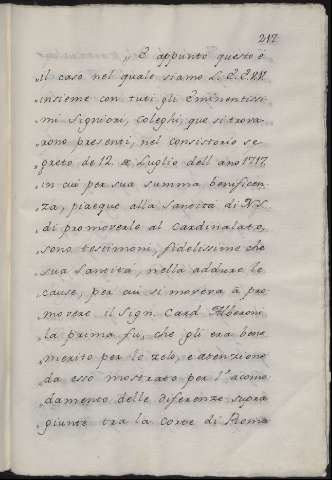 212
„ È appunto questo è
„ il caso nel quale siamo L. E. E. V.V.
„ insieme con tuti gli Eminentissi
„ mi Signiori, Coleghi, que si trova
„ rono presenti, nel consistorio se
„ greto de 12. Luglio dell anno 1717
„ in cui per sua summa benificen
„ za, piaeque alla Santità di N.S.
„ di promoverlo al Cardinalato,
„ sono testimoni, fidelissime che
„ sua Santità, nella addure le
„ cause, per cui si moveva à pro
„ movere il Sign. Card. Alberoni
„ la prima fu, che gli era bene
„ merito per lo zelo, e atenzione
„ da esso mostrato per l'acomo
„ damento delle diferenze supra
„ giunte tra la corte di Roma